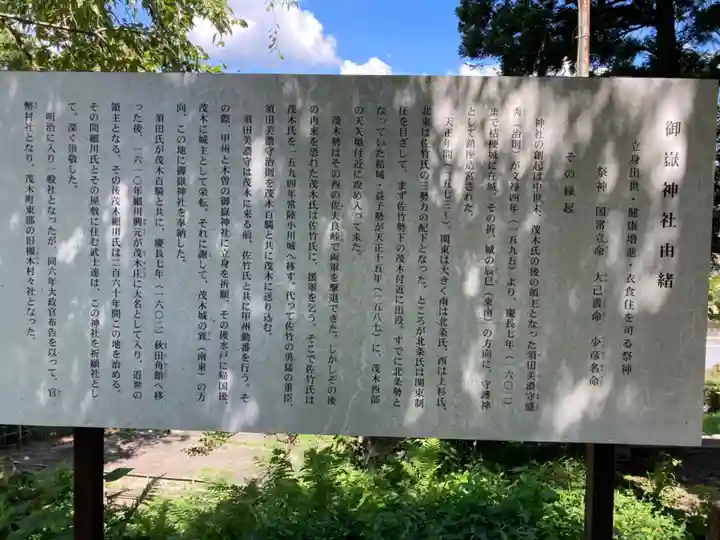 御嶽神社由緒
立身出世・健康増進・衣食住を司る祭神
祭神　国常立命　大己貴命　少彦名命
その縁起
神社の創起は中世末、茂木氏の後の領主となった須田美濃守盛
秀（治則）が文禄四年（一五九五）より、慶長七年（一六〇二）
まで桔梗城に在城、その折、城の辰巳（東南）の方向に、守護神
として鎮座造営された。
天正年間（一五七三～）関東は大きく南は北条氏、西は上杉氏、
北東は佐竹氏の三勢力の配下となった。ところが北条氏は関東制
圧を目ざして、まず佐竹勢下の茂木付近に出没、すでに北条勢と
なっていた結城・益子勢が天正十五年（一五八七）に、茂木西部
の天矢場付近に攻め入って来た。
茂木勢はその西の佐夫良峠で両軍を撃退できた。しかしその後
の再来を恐れた茂木氏は佐竹氏に、援軍を乞う。そこで佐竹氏は
茂木氏を一五九四年常陸小川城へ移す。代って佐竹の勇猛の重臣、
須田美濃守治則を茂木百騎と共に茂木に送り込む。
須田美濃守は茂木に来る前、佐竹氏と共に甲州勤番を行う。そ
の際、甲州と木曽の御嶽神社に立身を祈願、その後水戸に帰国後、
茂木に城主として栄転、それに謝して、茂木城の巽（南東）の方
向、この地に御嶽神社を奉納した。
須田氏が茂木百騎と共に、慶長七年（一六〇二）秋田角館へ移
った後、一六一〇年細川興元が茂木庄に大名として入り、近世の
領主となる。その後茂木細川氏は二百六十年間この地を治める。
その間細川氏とその屋敷に住む武士達は、この神社を祈願社とし
て、深く崇敬した。
明治に入り一般社となったが、同六年大政官布告を以って、官
幣村社となり、茂木町東部の旧槻木村々社となった。